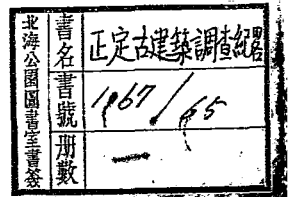 北海公園圖書室書簽
書名 正定古建築調查紀畧
書號 1967/65
册數 一